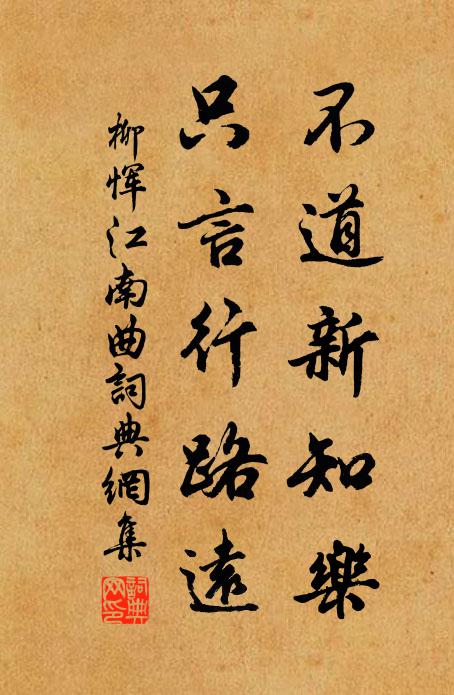 不道新知樂
只言行路遠
柳惲江南曲詞典網集
詞典網印